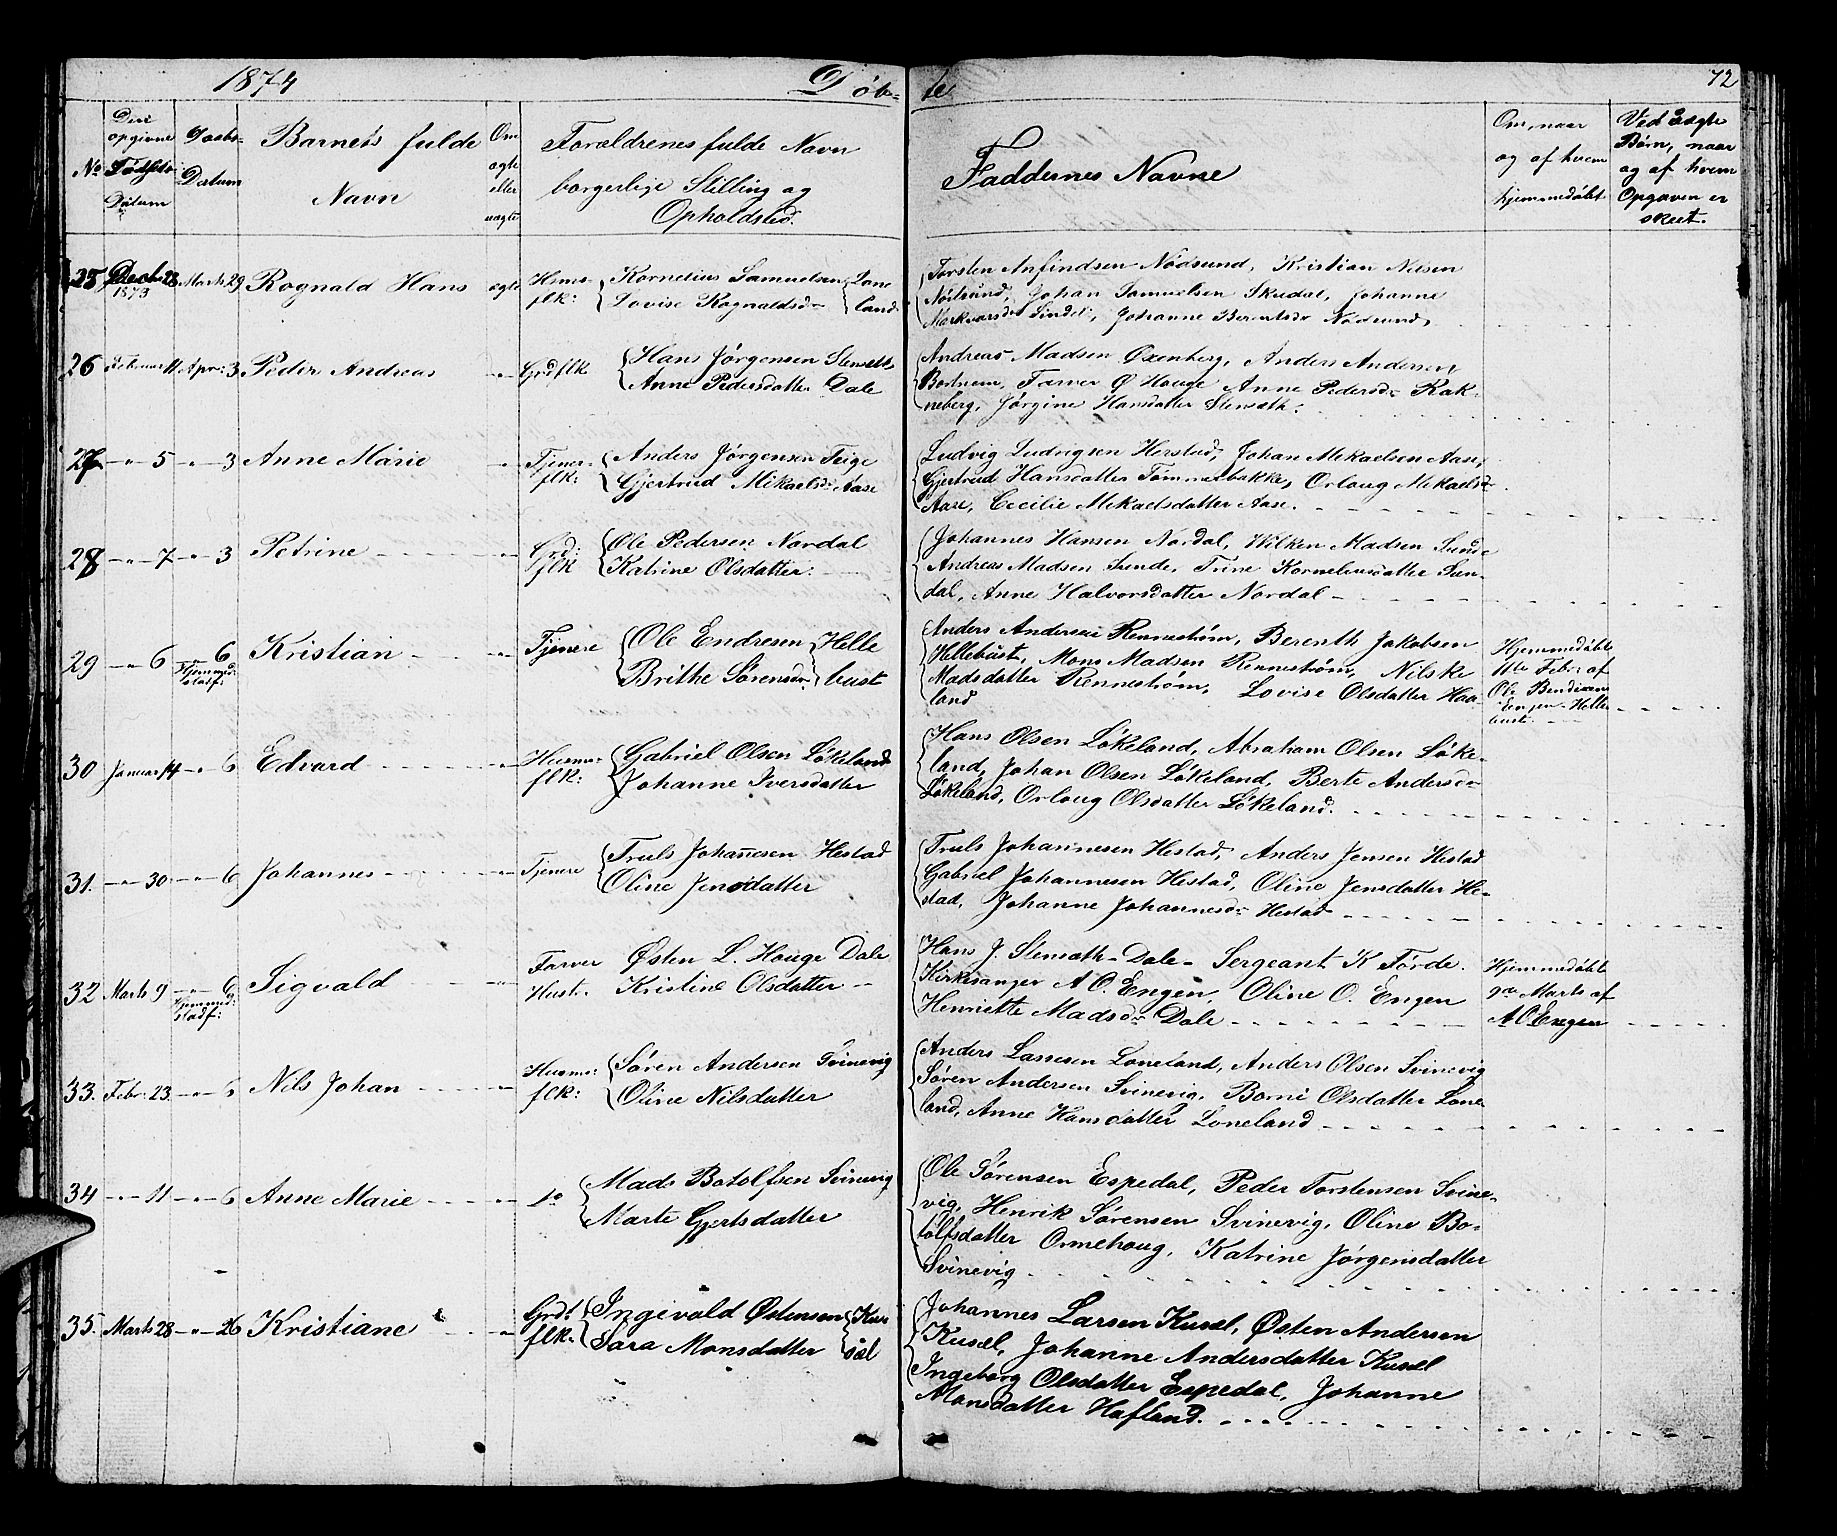 1874
Døb=
te
72
No
Den opgivne Fødsels Datum
Daabs-Datum
Barnets fulde Navn
Om ægte eller uægte
Forældrenes fulde Navn borgerlige Stilling og Opholdsted.
Faddernes Navne
Om, naar og af hvem hjemmedøbt
Ved Uægte Børn, naar og af hvem Opgaven er skeet.
25 Decbr 28 1873 Marts 29 Rognald Hans ægte Huus-flk: Kornelius Samuelsen Lovise Rognaldsdr Lone land
Torsten Anfindsen Nødsund, Kristian Nilsen
Nødsund, Johan Samuelsen Skudal, Johanne
Markvarsdr Sinde, Johanne Berentsdr Nødsund,
26 Februar 11 Apr: 3 Peder Andreas -"- Grdflk Hans Jørgensen Stensæth,
Anne Pedersdatter Dale
Andreas Madsen Oxenberg, Anders Andersen
Bortnem, Farver Ø Houge Anne Pedersdr Rak-
neberg, Jørgine Hansdatter Stensæth.
27 -"- 5 -"- 3 Anne Marie -"- Tjener-flk: Anders Jørgensen Teige
Gjertrud Mikaelsdr Aase
Ludvig Ludvigsen Herstad, Johan Mikaelsen Aase,
Gjertrud Hansdatter Tømmerbakke, Orloug Mekaelsdr
Aase, Cecilie Mekaelsdatter Aase.
28 -"- 7 -"- 3 Petrine -"- Grd: flk Ole Pedersen Nordal
Katrine Olsdatter.
Johannes Hansen Nordal, Wilken Madsen Sunde
Andreas Madsen Sunde, Trine Korneliusdatter Sun-
dal, Anne Halvorsdatter Nordal
29 -"- 6 -"- 6 Hjemmed: stadf: Kristian -"- Tjenere Ole Endresen
Brithe Sørensdr Helle bust
Anders Andersen Rennestrøm, Berenth Jakobsen
Hellebust, Mons Madsen Rennestrøm, Nilske
Madsdatter Rennestrøm, Lovise Olsdatter Haa-
land
Hjemmedøbt
11te Febr: af
Ole Bendixen
Engen Helle
bust.
30 Januar 14 -"- 6 Edvard -"- Husm:flk: Gabriel Olsen Løkeland
Johanne Iversdatter
Hans Olsen Løkeland, Abraham Olsen Løke-
land, Johan Olsen Løkeland, Berte Andersdr
Løkeland, Orloug Olsdatter Løkeland.
31. -"- 30 -"- 6 Johannes -"- Tjenere Truls Johannesen Hestad
Oline Jensdatter
Truls Johannesen Hestad, Anders Jensen Hestad
Gabriel Johannesen Hestad, Oline Jensdatter He-
stad, Johanne Johannesdr Hestad
32 Marts 9 -"- 6 Hjemmed: stadf: Sigvald -"- Farver Hust. Østen L. Houge Dale
Kristine Olsdatter
Hans J. Stensæth-Dale- Sergeant K Førde.
Kirkesanger A O. Engen, Oline O. Engen
Henriette Madsdr Dale
Hjemmedøbt
9de Marts af
A O Engen
33. Febr: 23 -"- 6 Nils Johan -"- Husm:flk: Søren Andersen Svinevig
Oline Nilsdatter
Anders Lassesen Loneland, Anders Olsen Svinevig
Søren Andersen Svinevig, Borni Olsdatter Lone-
land, Anne Hansdatter Loneland
34 -"- 11 -"- 6 Anne Marie -"- do Mads Botolfsen Svinevig
Marte Gjertsdatter
Ole Sørensen Espedal, Peder Torstensen Svine-
vig, Henrik Sørensen Svinevig, Oline Bo-
tolfsdatter Ormehoug, Katrine Jørgensdatter
Svinevig
35. Marts 28 -"- 26 Kristiane -"- Grd: flk: Ingevald Østensen
Sara Monsdatter Kus sæl
Johannes Larsen Kusæl, Østen Andersen
Kusæl, Johanne Andersdatter Kusæl
Ingeborg Olsdatter Espedal, Johanne
Monsdatter Hafland.